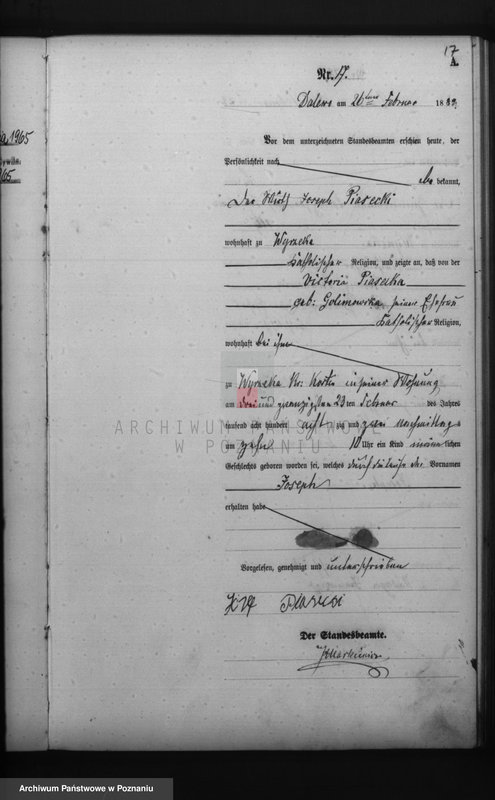 17
A.
Nr. 17.
Dalewo am 26ten Februar 1882
Vor dem unterzeichneten Standesbeamten erschien heute, der
Persönlichkeit nach
bekannt,
Der Wirth Joseph Piasecki
wohnhaft zu Wyrzeka
katholischer Religion, und zeigte an, daß von der
Victoria Piasecka
geb: Golimowska seiner Ehefrau
katholischer Religion,
wohnhaft bei ihm
zu Wyrzeka in seiner Wohnung
am drei und zwanzigsten 23ten Februar des Jahres
tausend acht hundert acht zig und zwei nachmittags
um zehn 10 Uhr ein Kind männlichen
Geschlechts geboren worden sei, welches den Vornamen
Joseph
erhalten habe
Vorgelesen, genehmigt und unterschrieben
Der Standesbeamte.
ia, 1965
cywiln.
65
ARCHIWUM PAŃSTWOWE
W POZNANIU
Archiwum Państwowe w Poznaniu